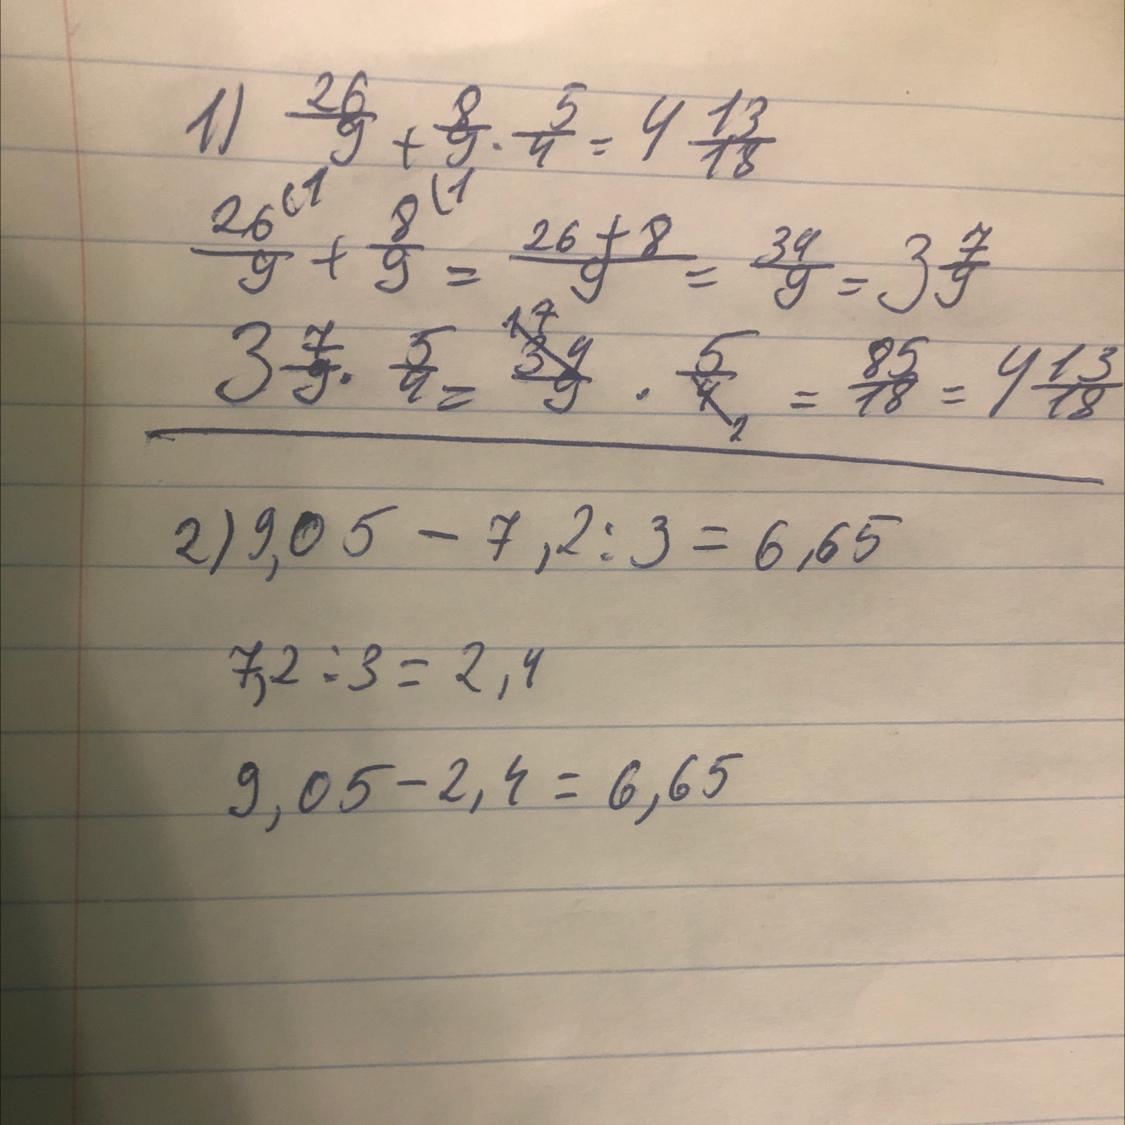 1) 26/9 + 8/9 · 5/4 = 4 13/18
26(1/9 + 8(1/9 = 26+8/9 = 34/9 = 3 7/9
3 7/9 · 5/4 = 17 34/9 · 5/4 2 = 85/18 = 4 13/18
2) 9,05 – 7,2 : 3 = 6,65
7,2 : 3 = 2,4
9,05 – 2,4 = 6,65